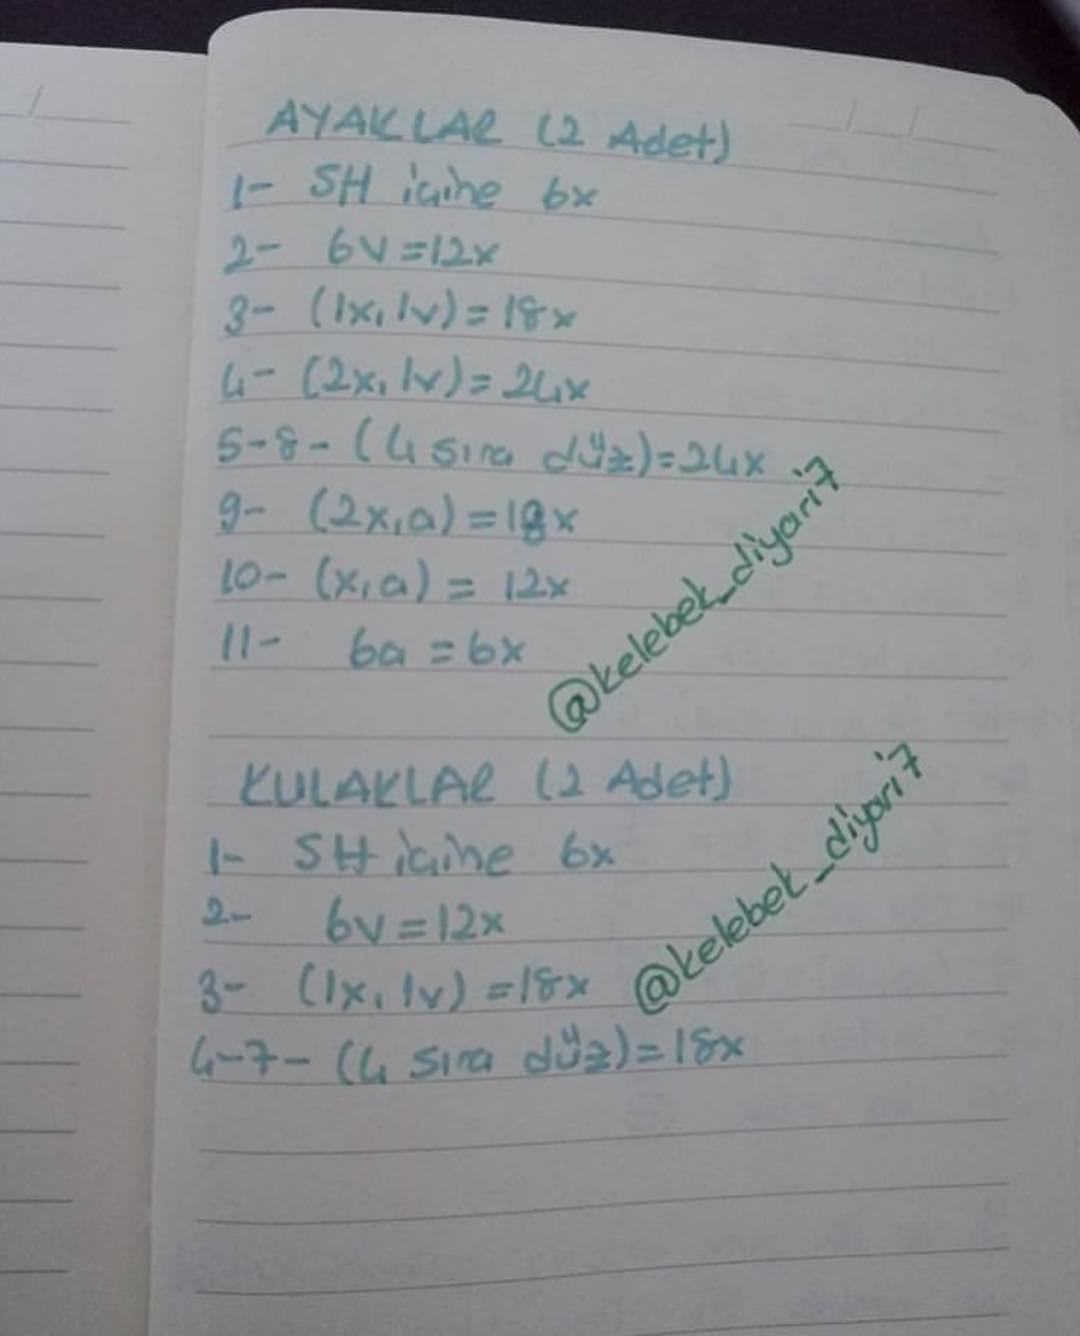 AYAKLAR (2 Adet)
1- SH içine 6x
2- 6v=12x
3- (1x,1v)=18x
4- (2x,1v)=24x
5-8-(4 sıra düz)=24x
9- (2x,a)=18x
10- (x,a)= 12x
11- 6a=6x
@kelebek_diyari7
KULAKLAR (2 Adet)
1- SH içine 6x
2- 6v=12x
3- (1x,1v)=18x
@kelebek_diyari7
4-7-(4 sıra düz)=18x